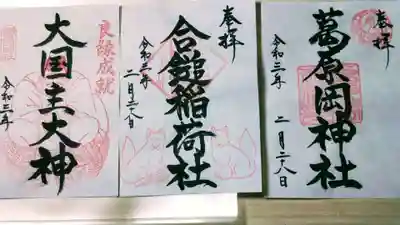 奉拝
葛原岡神社
令和三年
二月二十八日
奉拝
合鎚稲荷社
令和三年
二月二十八日
良縁成就
大国主大神
令和三年